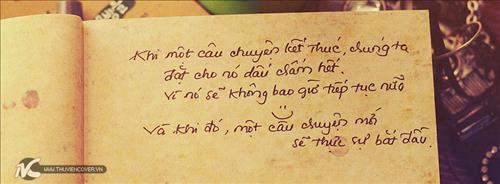 Khi một câu chuyện kết thúc, chúng ta
đặt cho nó dấu chấm hết.
Vì nó sẽ không bao giờ tiếp tục nữa
Và khi đó, một câu chuyện mới
sẽ thực sự bắt đầu.
WWW.THUVIENCOVER.VN